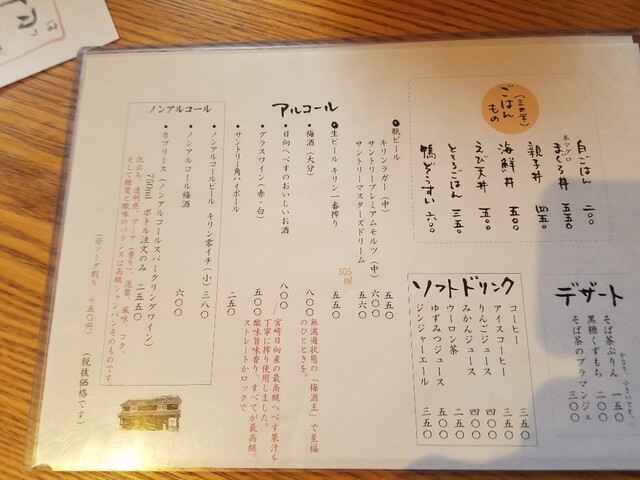 ごはんもの
(三田米)
白ごはん 二〇〇
本マグロ
まぐろ丼 五五〇
親子丼 四五〇
海鮮丼 五〇〇
えび天丼 五〇〇
とろろごはん 三五〇
鴨ぞうすい 六〇〇
デザート
そば茶ぷりん 一五〇
黒糖くずもち 二〇〇
そば茶のブラマンジェ 三〇〇
ソフトドリンク
コーヒー 三五〇
アイスコーヒー 三五〇
りんごジュース 四〇〇
みかんジュース 四〇〇
ウーロン茶 二五〇
ゆずみつジュース 四五〇
ジンジャーエール 三五〇
アルコール
●瓶ビール
キリンラガー(中) 五五〇
サントリープレミアムモルツ(中) 六〇〇
サントリーマスターズドリーム 305ml 五五〇
●生ビール キリン一番搾り 五五〇
●梅酒(大分) 八〇〇
無濾過状態の「梅酒王」で至福のひとときを。
●日向へべすのおいしいお酒 八〇〇
宮崎日向産の最高級へべす果汁を
丁寧に搾り使用しました。
酸味旨味香り、すべてが最高級。
ストレートかロックで
●グラスワイン(赤・白) 五〇〇
●サントリー角ハイボール 二五〇
ノンアルコール
●ノンアルコールビール キリン零イチ(小) 三八〇
●ノンアルコール梅酒 六〇〇
●カプリース(ノンアルコールスパークリングワイン)
750ml ボトル注文のみ 二五五〇
泡立ち、透明感、ブーケ(香り)、品質、風味、コク、
そして糖度と酸味のバランスは高級シャンパンそのものです。
(※ソーダ割り +五〇円)
(税抜価格です)